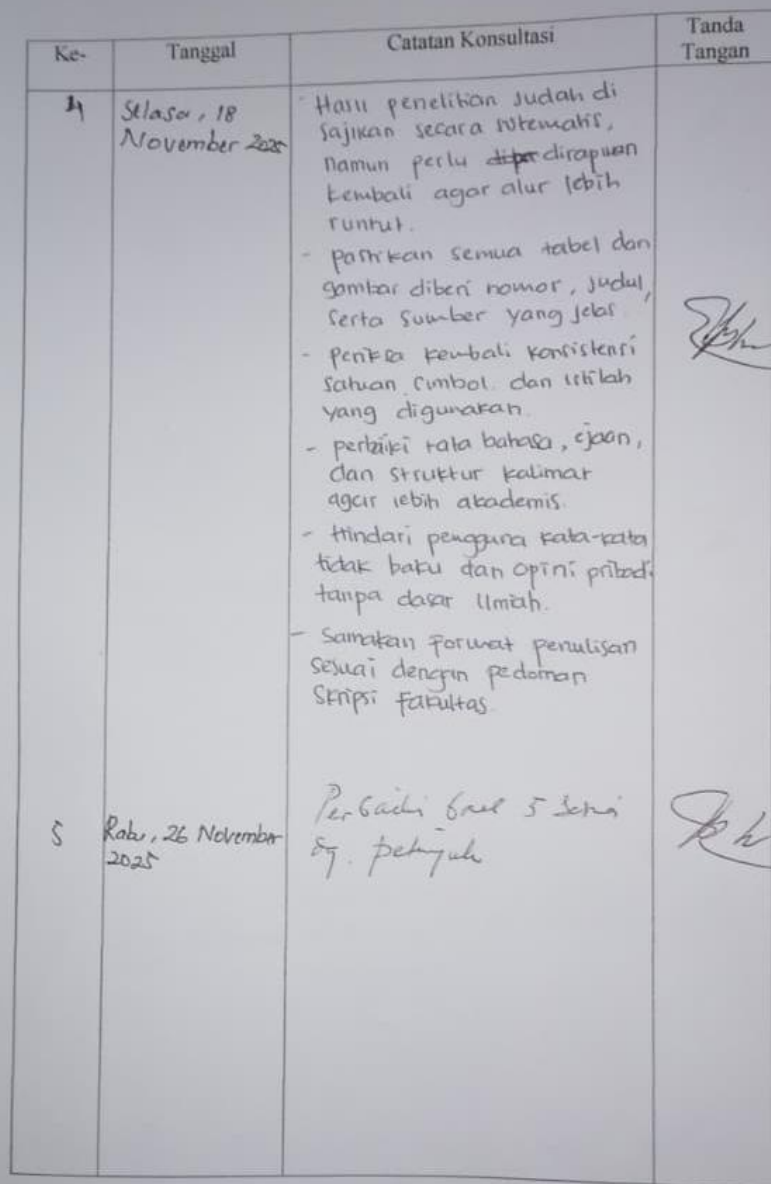 Ke-
Tanggal
Catatan Konsultasi
Tanda
Tangan
4
Selasa, 18
November 2025
- Hasil penelitian sudah di
sajikan secara sistematis,
namun perlu dirapikan
kembali agar alur lebih
runtut.
- pastikan semua tabel dan
gambar diberi nomor, judul,
serta sumber yang jelas
- periksa kembali konsistensi
satuan, simbol. dan istilah
yang digunakan.
- perbaiki tata bahasa, ejaan,
dan struktur kalimat
agar lebih akademis.
- Hindari pengguna kata-kata
tidak baku dan opini pribadi
tanpa dasar ilmiah.
- Samakan format penulisan
sesuai dengan pedoman
Skripsi fakultas.
5
Rabu, 26 November
2025
Perbaiki 5
petunjuk